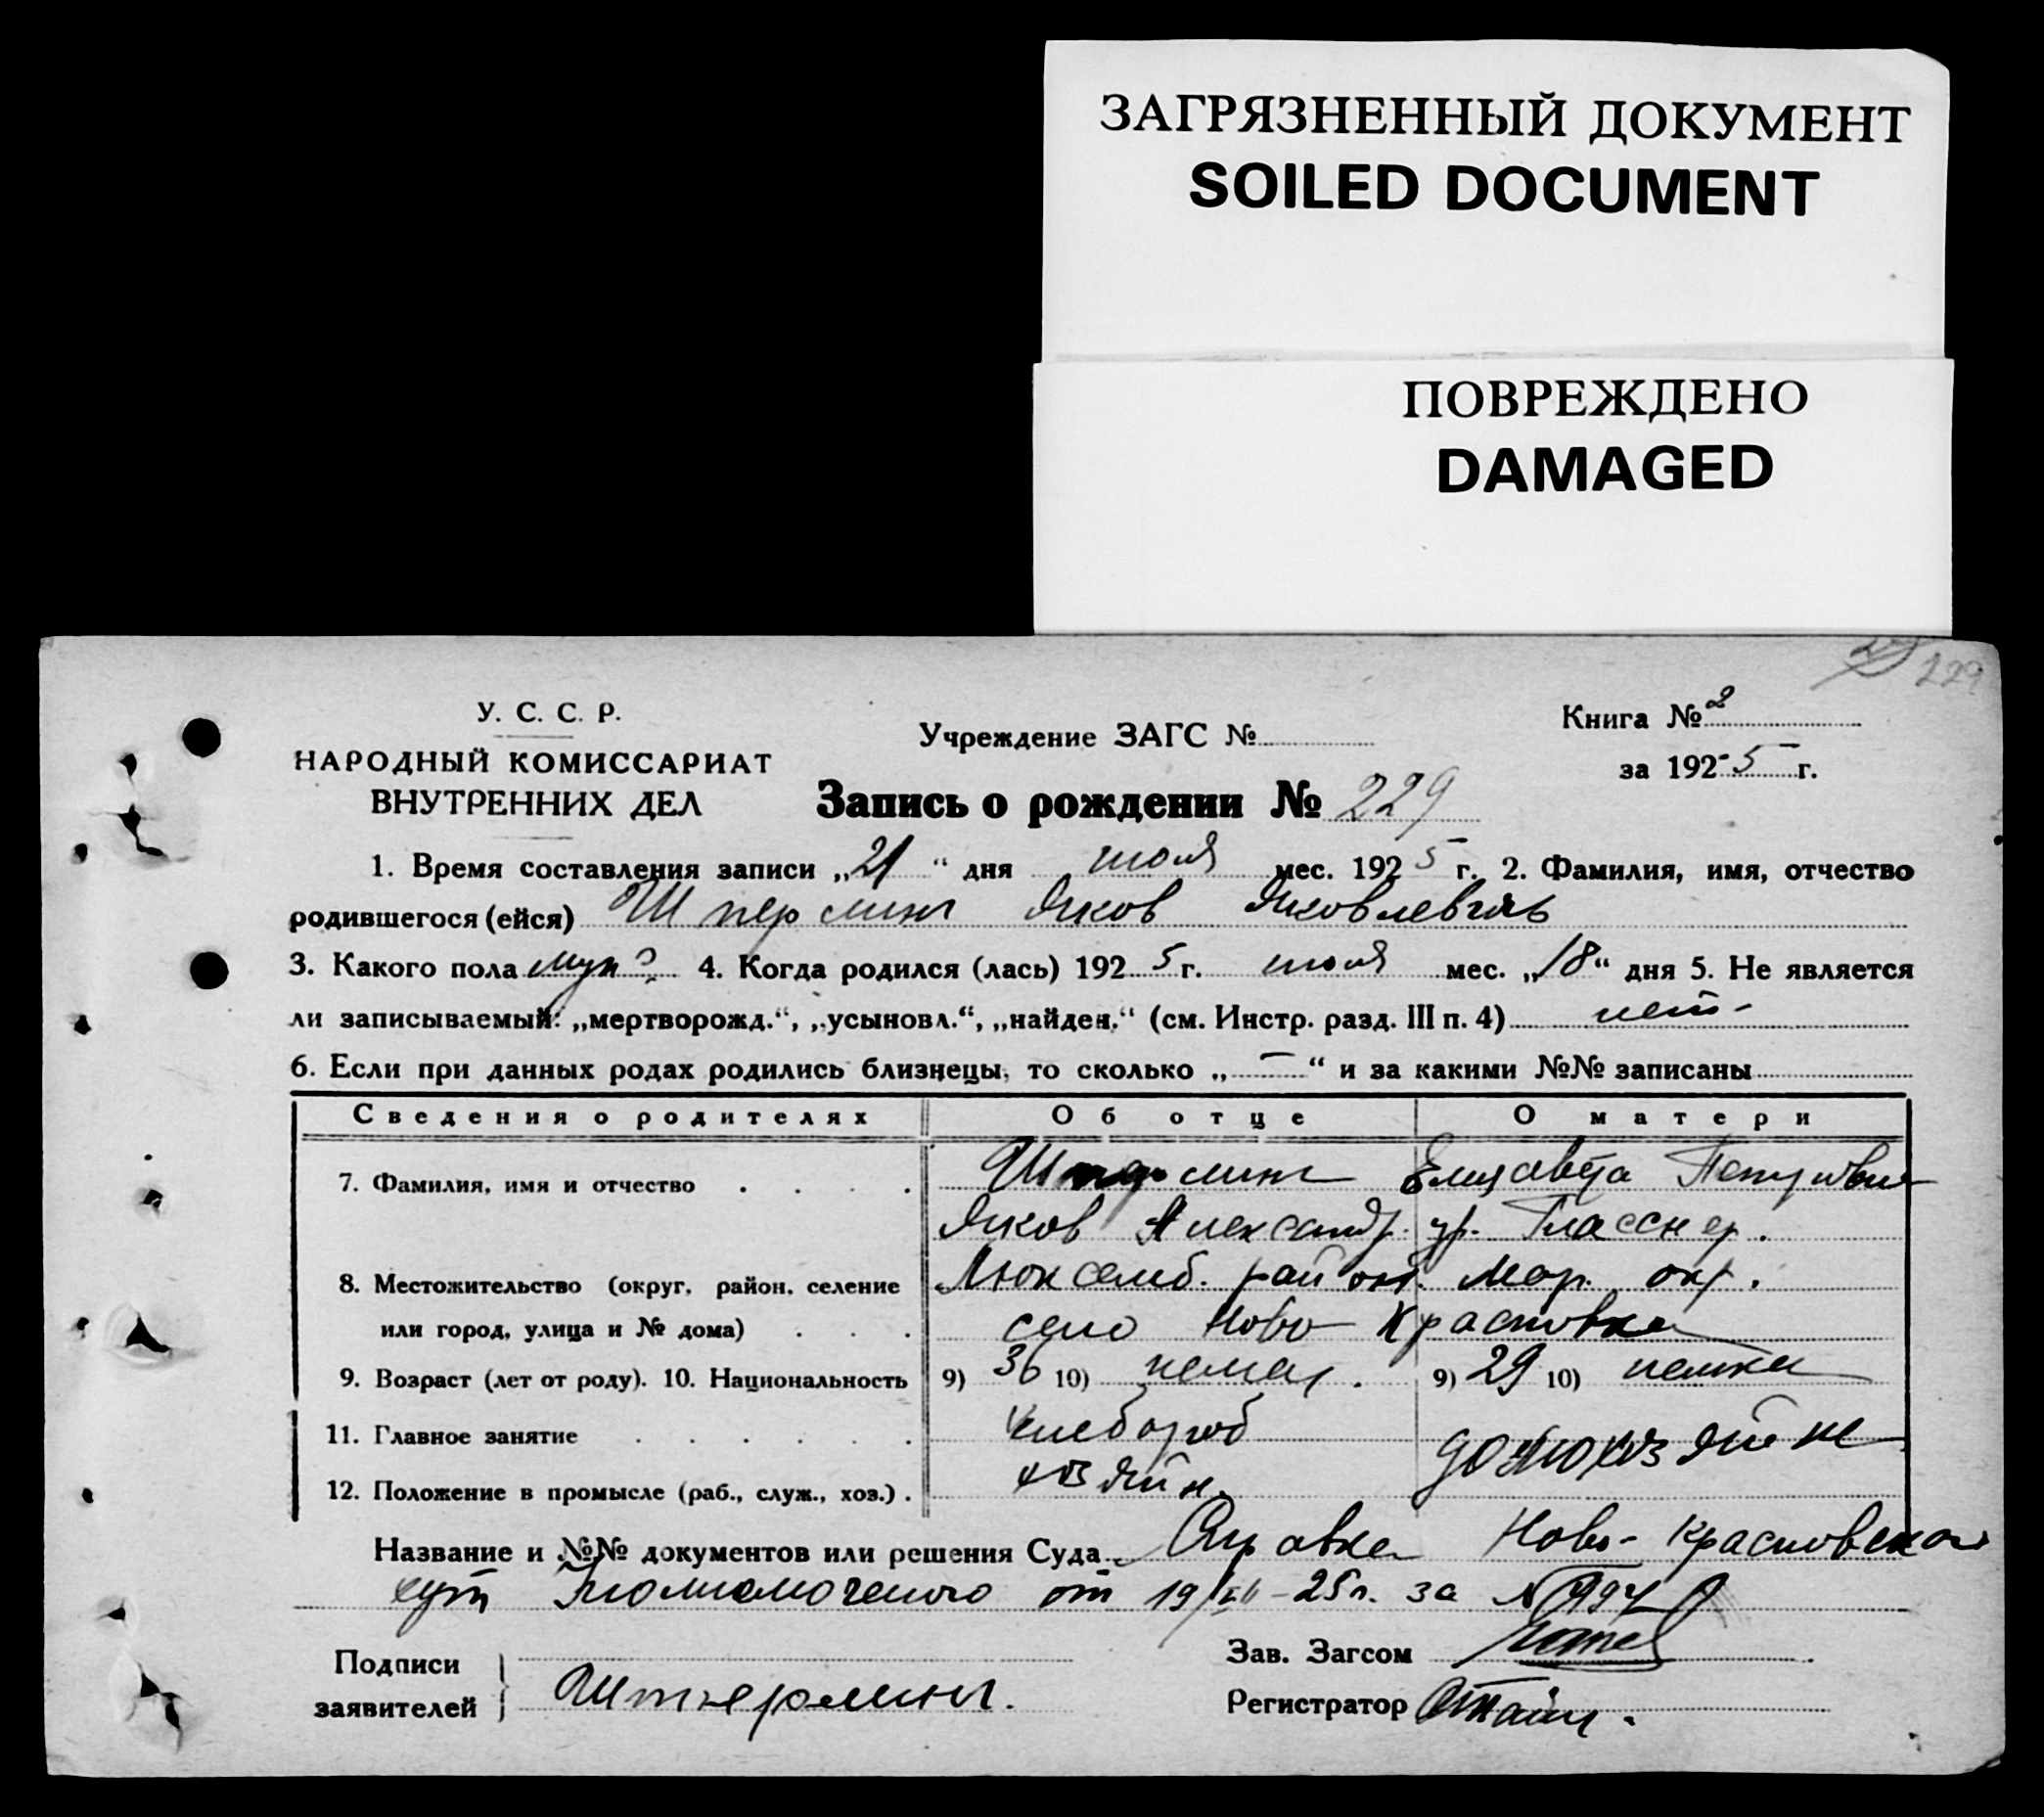 ЗАГРЯЗНЕННЫЙ ДОКУМЕНТ
SOILED DOCUMENT
ПОВРЕЖДЕНО
DAMAGED
229
У. С. С. Р.
НАРОДНЫЙ КОМИССАРИАТ
ВНУТРЕННИХ ДЕЛ
Учреждение ЗАГС №
Книга № 2
за 1925 г.
Запись о рождении № 229
1. Время составления записи „21“ дня июля мес. 1925 г. 2. Фамилия, имя, отчество
родившегося (ейся) Штерлинг Яков Яковлевич
3. Какого пола муж. 4. Когда родился (лась) 1925 г. июля мес. „18“ дня 5. Не является
ли записываемый: „мертворожд.“, „усыновл.“, „найден.“ (см. Инстр. разд. III п. 4) нет
6. Если при данных родах родились близнецы, то сколько „—“ и за какими №№ записаны
Сведения о родителях Об отце О матери
7. Фамилия, имя и отчество Елизавета
Яков Александр. ур. Гласснер.
8. Местожительство (округ, район, селение Люксемб. район. Мар. окр.
или город, улица и № дома) село Ново Красновка
9. Возраст (лет от роду). 10. Национальность 9) 36 10) немец. 9) 29 10) немка
11. Главное занятие хлебороб домохозяйка
12. Положение в промысле (раб., служ., хоз.) хозяин.
Название и №№ документов или решения Суда Справка Ново-Красновского
от 19/VII-25 г. за №
Подписи
заявителей
Зав. Загсом
Регистратор